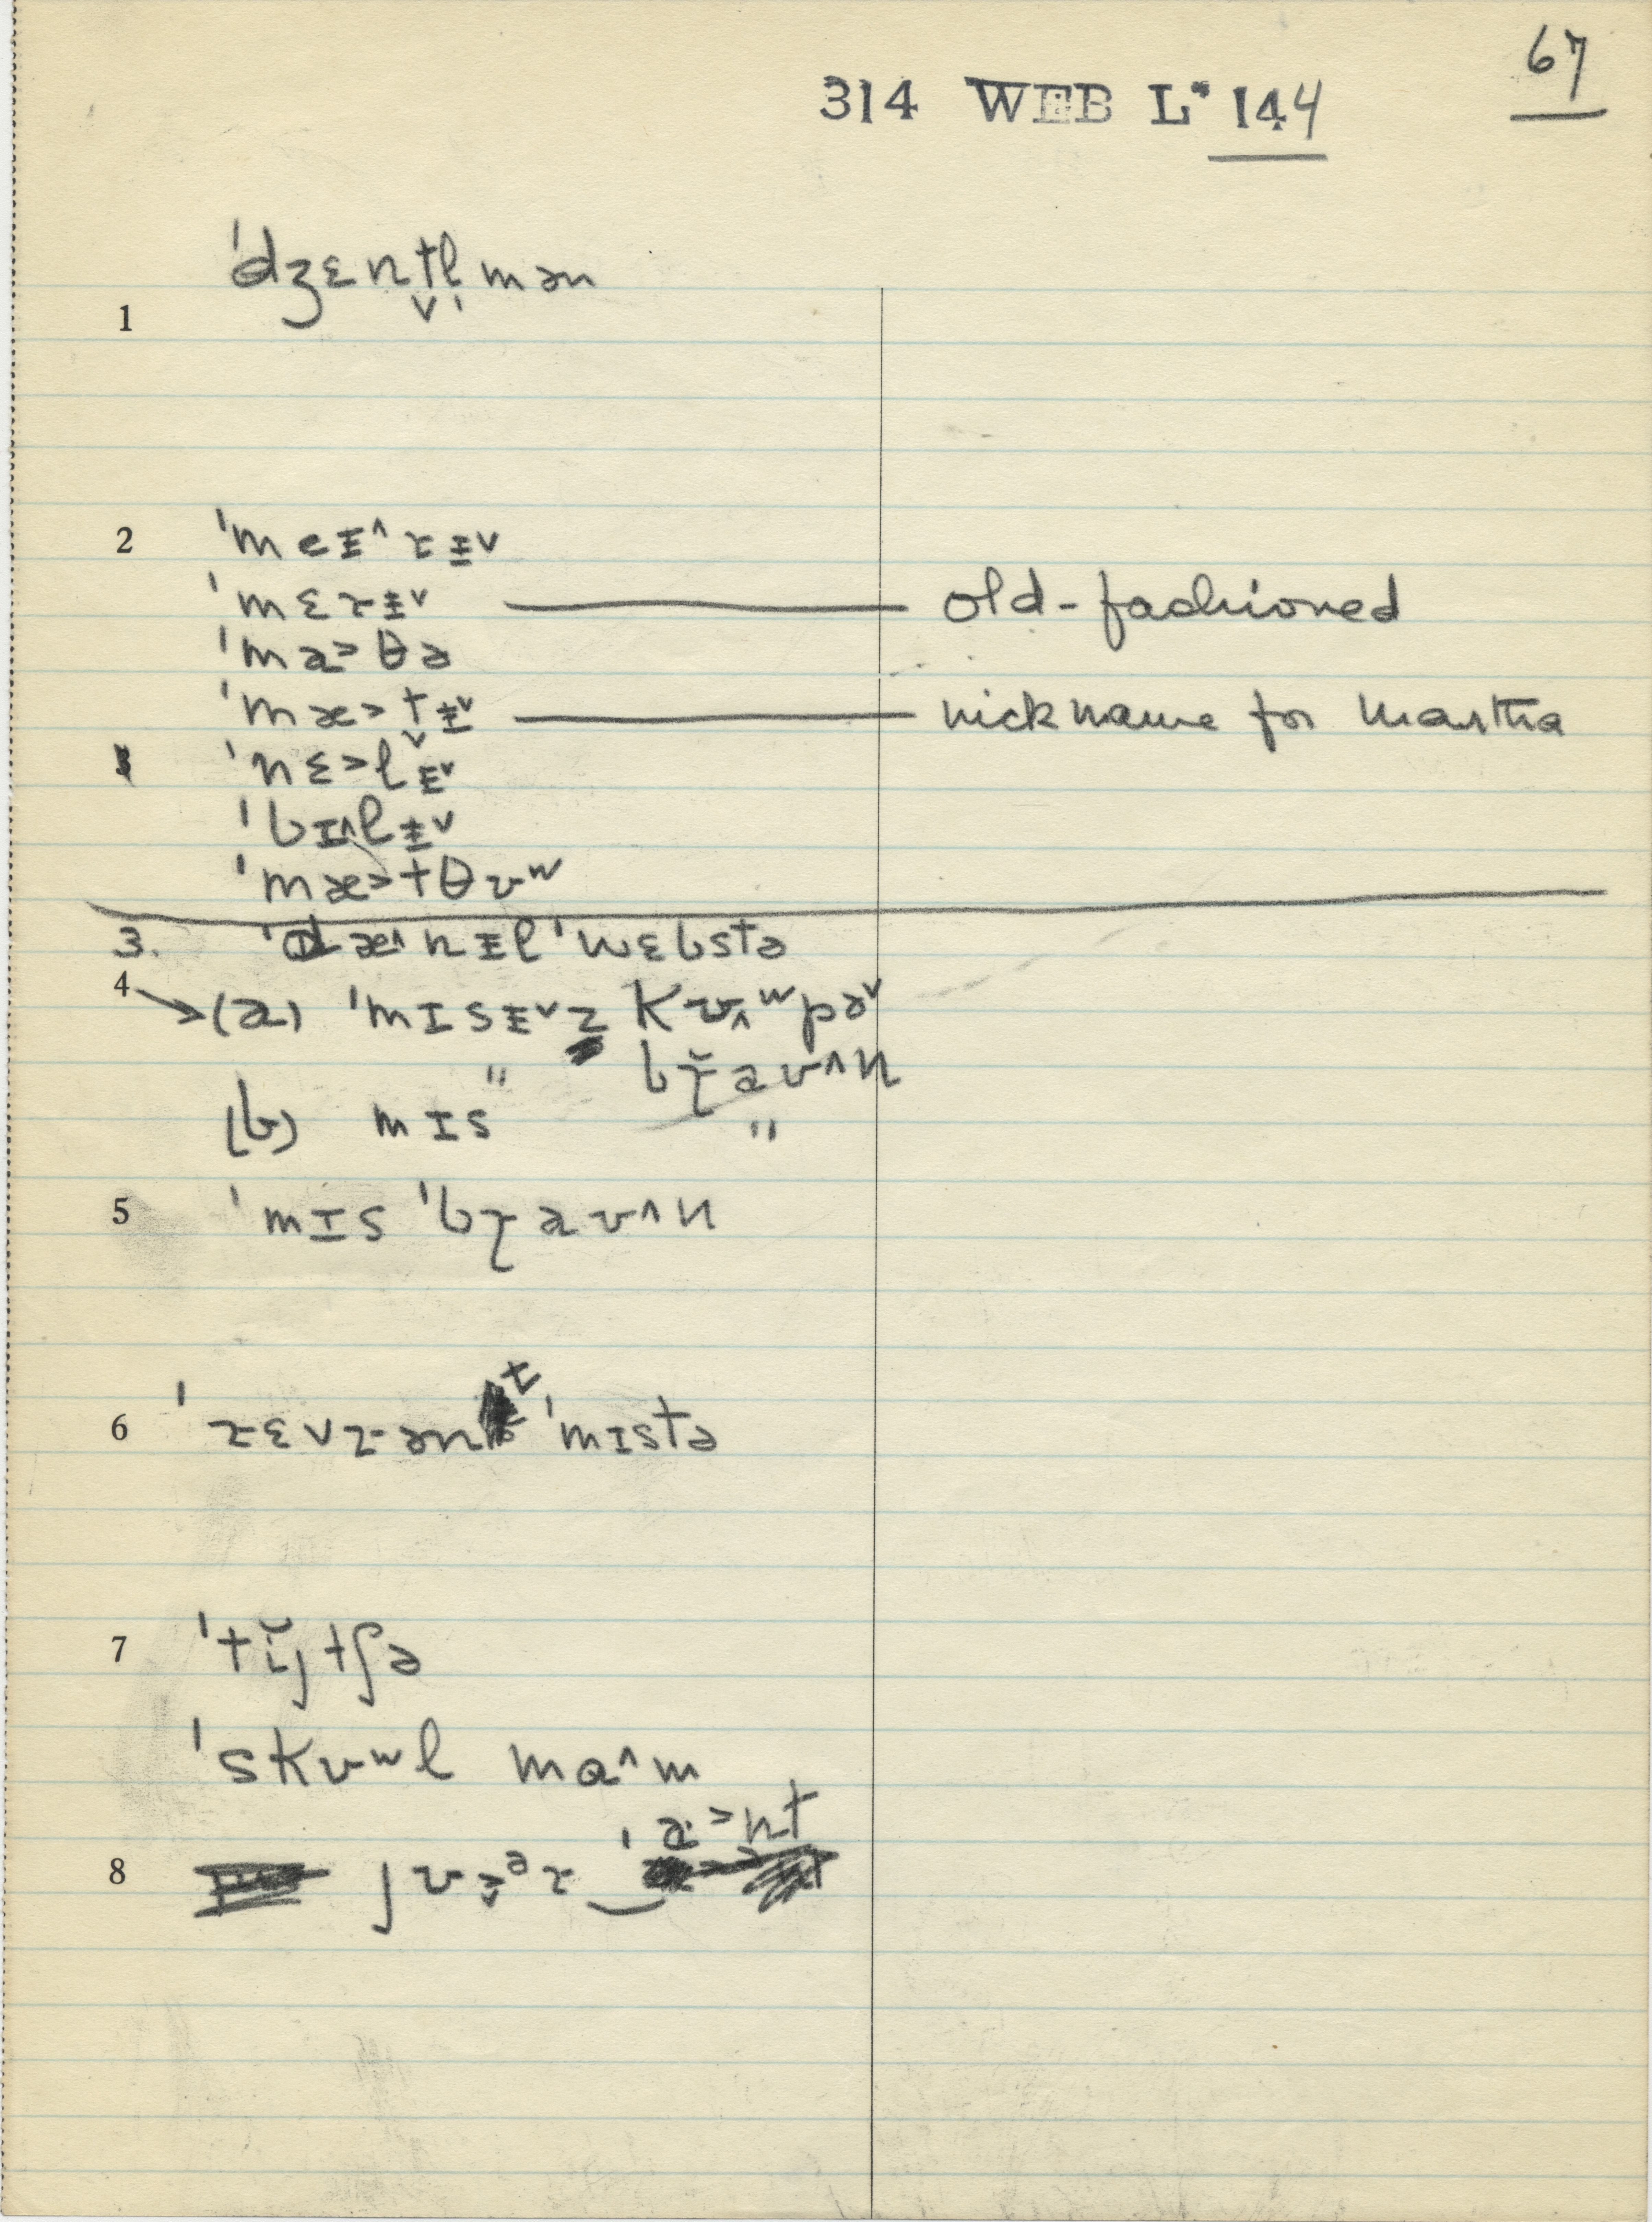 67
314 WEB L* 144
1 ˈdʒɛnt̬l̩mən
2 ˈmeɪ^ɾɪ˅
ˈmɛɾɪ˅ — old-fashioned
ˈma>θə
ˈmæ>t̬ɪ˅ — nickname for Martha
ˈnɛ>lɪ˅
ˈbɪ^lɪ˅
ˈmæ>tθʊʷ
3. ˈdæ^nɪl ˈwɛbstə
4 → (a) ˈmɪsɪ˅z kʊ^ʷpə˅
" bɽ̆aʊ^n
(b) mɪs "
5 ˈmɪs ˈbɽaʊ^n
6 ˈɾɛvɾənt ˈmɪstə
7 ˈtĭjtʃə
ˈskʊʷl mɑ^m
8 jʊ>˅ᵊɾ‿ˈa>nt